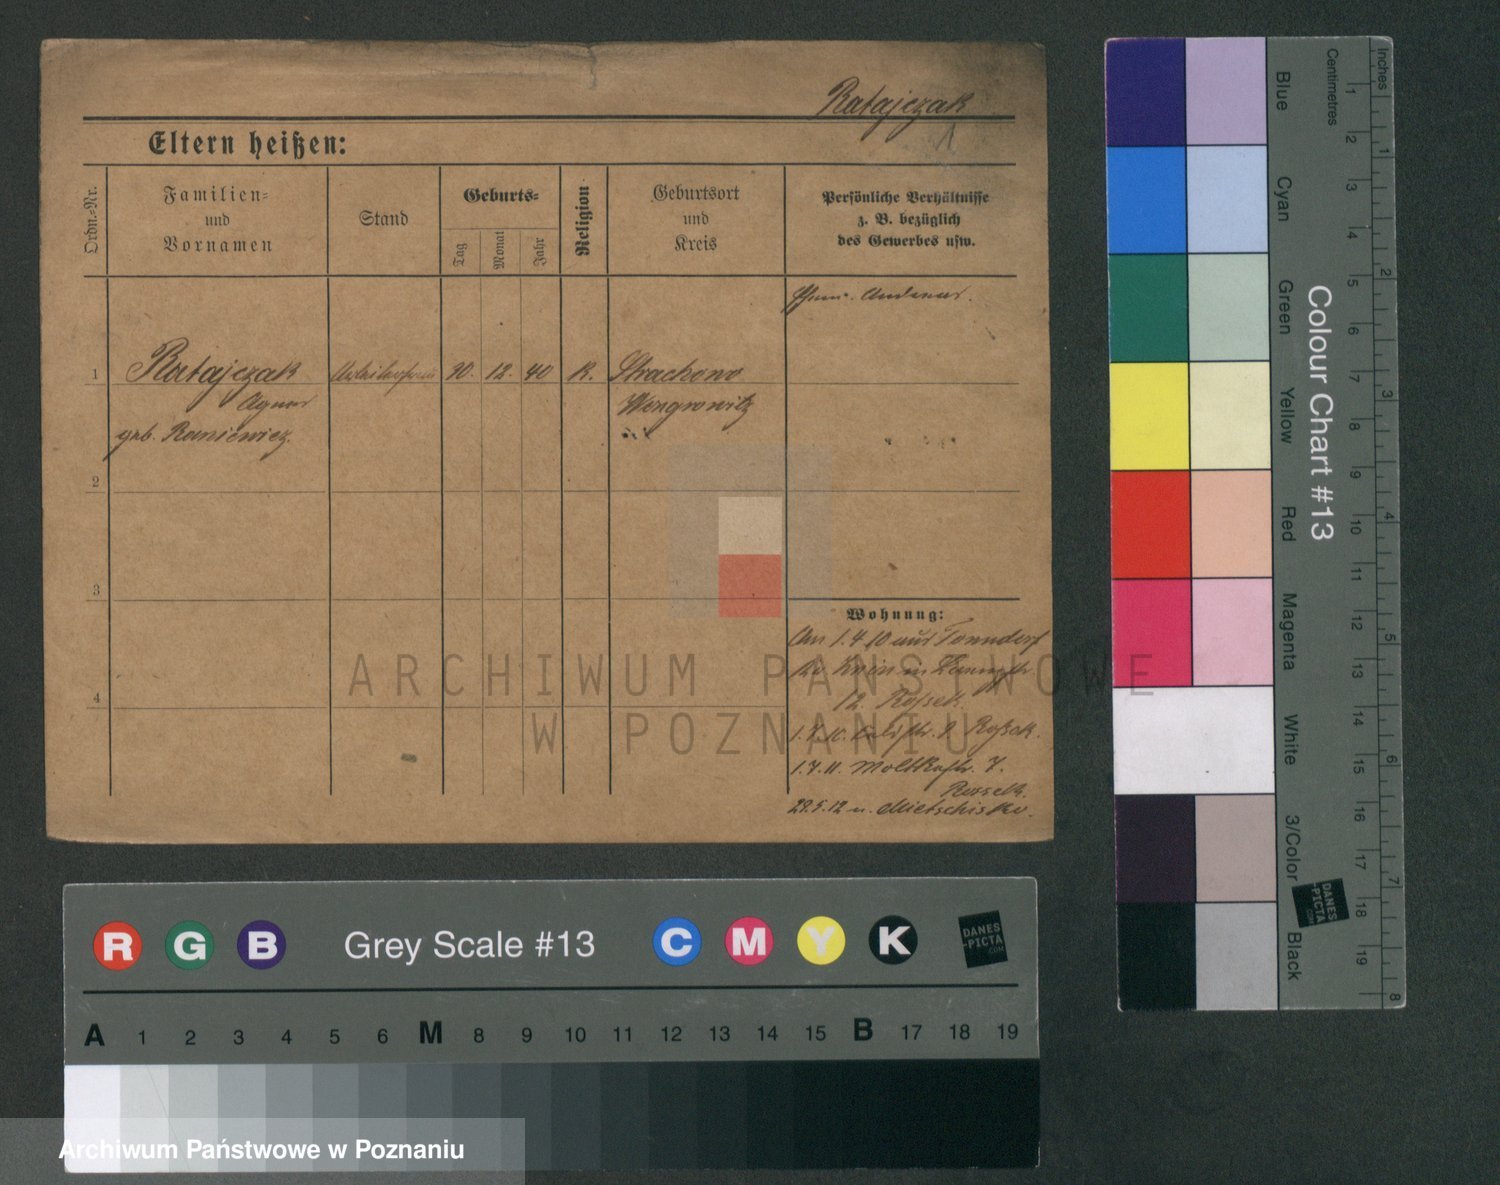 Ratajczak
1
Eltern heißen:
Ordn.=Nr.
Familien=
und
Vornamen
Stand
Geburts=
Tag
Monat
Jahr
Religion
Geburtsort
und
Kreis
Persönliche Verhältnisse
z. B. bezüglich
des Gewerbes usw.
1 Ratajczak 12. 40 K. Strachowo
Agnes Wongrowitz
geb.
2
3
4
Wohnung:
1.4.10 aus Tonndorf
12.
1.7.11. Moltkestr. 7.
29.5.12 n. Mietschisko.
ARCHIWUM PAŃSTWOWE
W POZNANIU
R G B Grey Scale #13 C M Y K
DANES
-PICTA
.COM
A 1 2 3 4 5 6 M 8 9 10 11 12 13 14 15 B 17 18 19
Archiwum Państwowe w Poznaniu
Colour Chart #13
Blue
Cyan
Green
Yellow
Red
Magenta
White
3/Color
Black
Centimetres
1 2 3 4 5 6 7 8 9 10 11 12 13 14 15 16 17 18 19
Inches
1 2 3 4 5 6 7 8
DANES
-PICTA
.COM